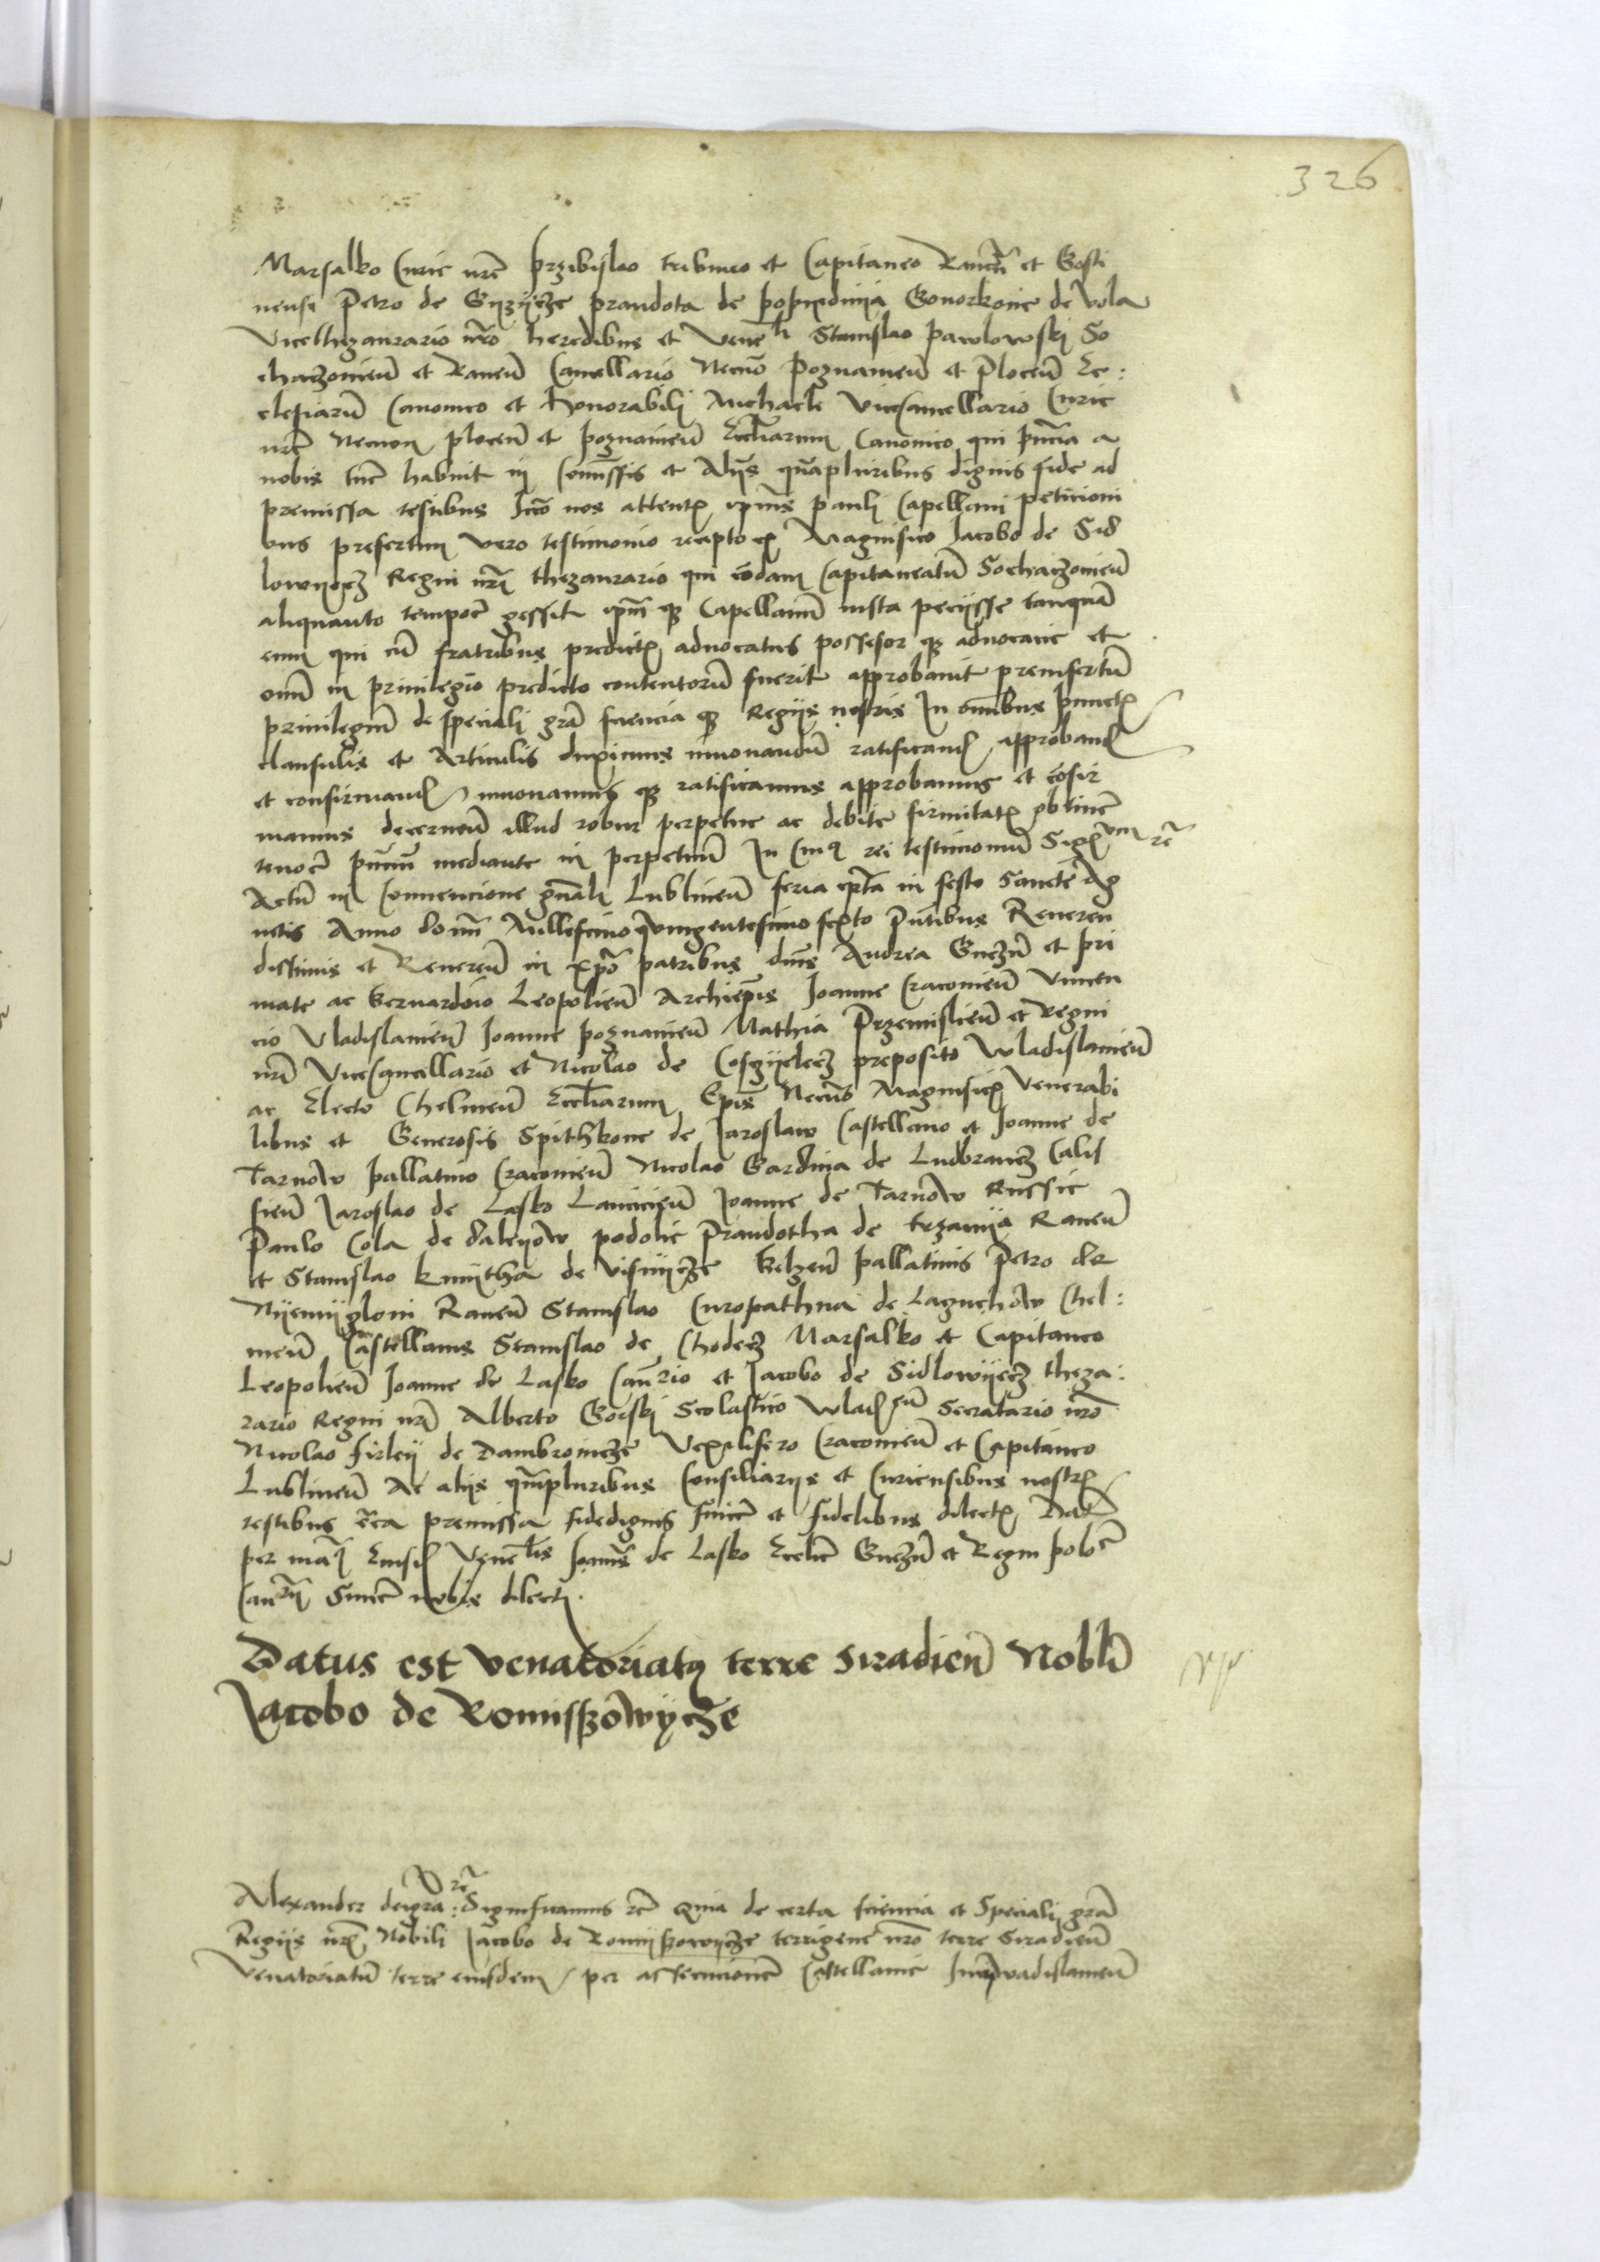 326
Marsalko Curie nre Przibislao tribuno et Capitaneo Rauen et Gosti
nense Petro de Gyzycze prandota de Gonorkone de vola
Vicethezaurario nro heredibus et Venebli Stanislao pawlowski So
chaczouien et Rauen Cancellario Necno Poznanien et Plocen Ec:
clesiaru Canonico et Honorabili Michaele Vicecancellario Curie
nre Necnon plocen et poznanien Eccliarum Canonico qui pntia a
nobis tunc habuit in comissis et Alys quapluribus dignis fide ad
premissa testibus Itaq nos attentis ipius pauli Capellani peticioni
bus presertim vero testimonio recepto ex Magnifico Jacobo de Sid
lowyecz Regni nri thezaurario qui eodam Capitaneatu Sochaczouien
aliquanto tempore gessit ipm q Capellanu iusta petysse tanqua
eum qui cu fratribus predictis aduocatus possessor q aduocacie et
omi in priuilegio predicto contentoru fuerit approbauit preinsertu
priuilegiu de speciali gra sciencia q Regys nostris In omibus punctis
clausulis et Articulis duximus innouandu ratificand approband
et confirmand innouamus q ratificamus approbamus et cofir
mamus decernen illud robur perpetue ac debite firmitatis obtinere
tenore pntium mediante in perpetuu In cuius rei testimoniu Sigillum re
Actu in Conuencione gnali Lublinen feria qrta in festo Sancte Ag
netis Anno domi Millesimo quingentesimo sexto Pntibus Reueren
dissimis et Reueren in xpo patribus dnis Andrea Gnezn et pri
mate ac bernardino Leopolien Archiepis Joanne Cracouien Vincen
cio Vladislauien Joanne poznanien Mathia Przemislien et Regni
nri Vicecancellario et Nicolao de Cosczyelecz preposito Wladislauien
ac Electo Chelmen Eccliarum Epis Necno Magnificis Venerabi
libus et Generosis Spithkone de Jaroslaw Castellano et Joanne de
Tarnow pallatino Cracouien Nicolao Gardina de Ludbrancz Calis
sien Jaroslao de Lasko Lancicien Joanne de Tarnow Russie
Paulo Cola de daleyow podolie Prandotha de trzanya Rauen
et Stanislao kmytha de Visnycze belzen pallatinis Petro de
Nyemygloni Rauen Stanislao Curopathua de Laguchow Chel:
men Castellanis Stanislao de Chodecz Marsalko et Capitaneo
Leopolien Joanne de Lasko Canrio et Jacobo de Sidlowyecz theza:
rario Regni nri Alberto Gorski Scolastico Wladien Secratario nro
Nicolao firley de dambrowicze Vexilifero Cracouien et Capitaneo
Lublinen Ac alys qmpluribus Consiliarys et Curiensibus nostris
testibus crca premissa fidedignis sincere et fidelibus dilectis Dat
per man eiusd Venebilis Joanis de Lasko Ecclie Gnezn et Regni polo
Canry Sincere nobis dilecti
Datus est venatoriatq terre siradien Nobli
Jacobo de Romisszowycze
Alexander deigra: Significamus re Quia de certa sciencia et Speciali gra
Regys nris Nobili Jacobo de Romysszowycze terrigene nro terre Siradien
Venatoriatu terre eiusdem per assecucione Castellanie Juniwladislauien